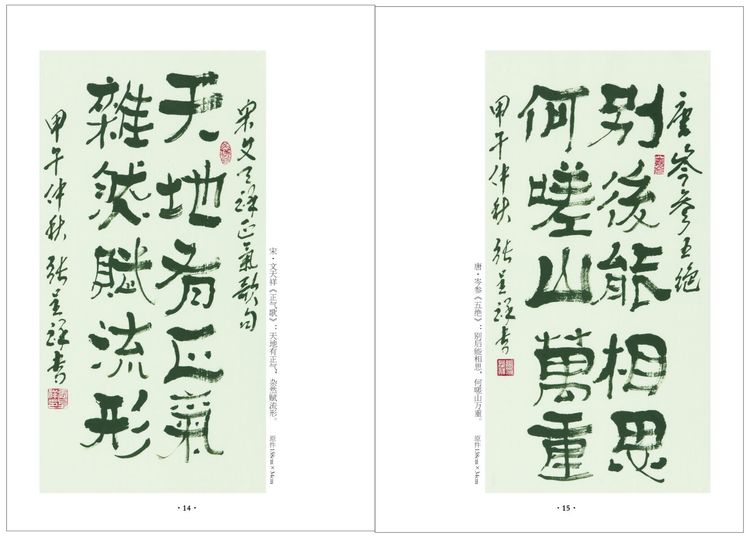 宋文天祥正氣歌句
天地有正氣
雜然賦流形
甲午仲秋 张呈祥书
宋·文天祥《正气歌》：天地有正气，杂然赋流形。 原件138cm×34cm
·14·
唐岑參五绝
别後能相思
何嗟山萬重
甲午仲秋 张呈祥书
唐·岑参《五绝》：别后能相思，何嗟山万重。 原件138cm×34cm
·15·